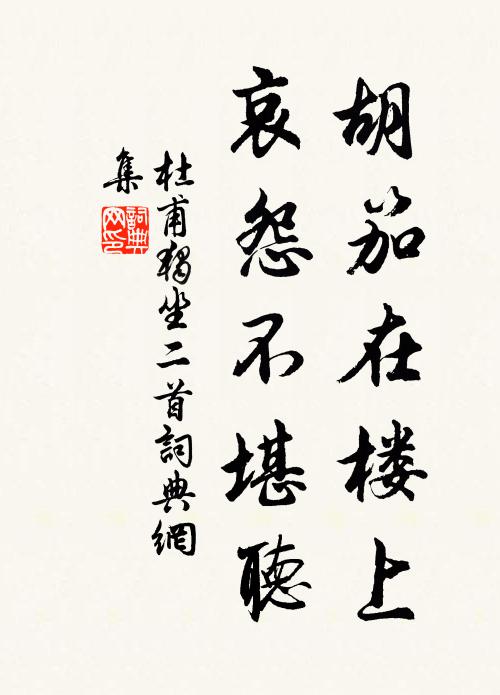 胡笳在楼上
哀怨不堪聽
杜甫獨坐二首詞典網
集
詞典
网印